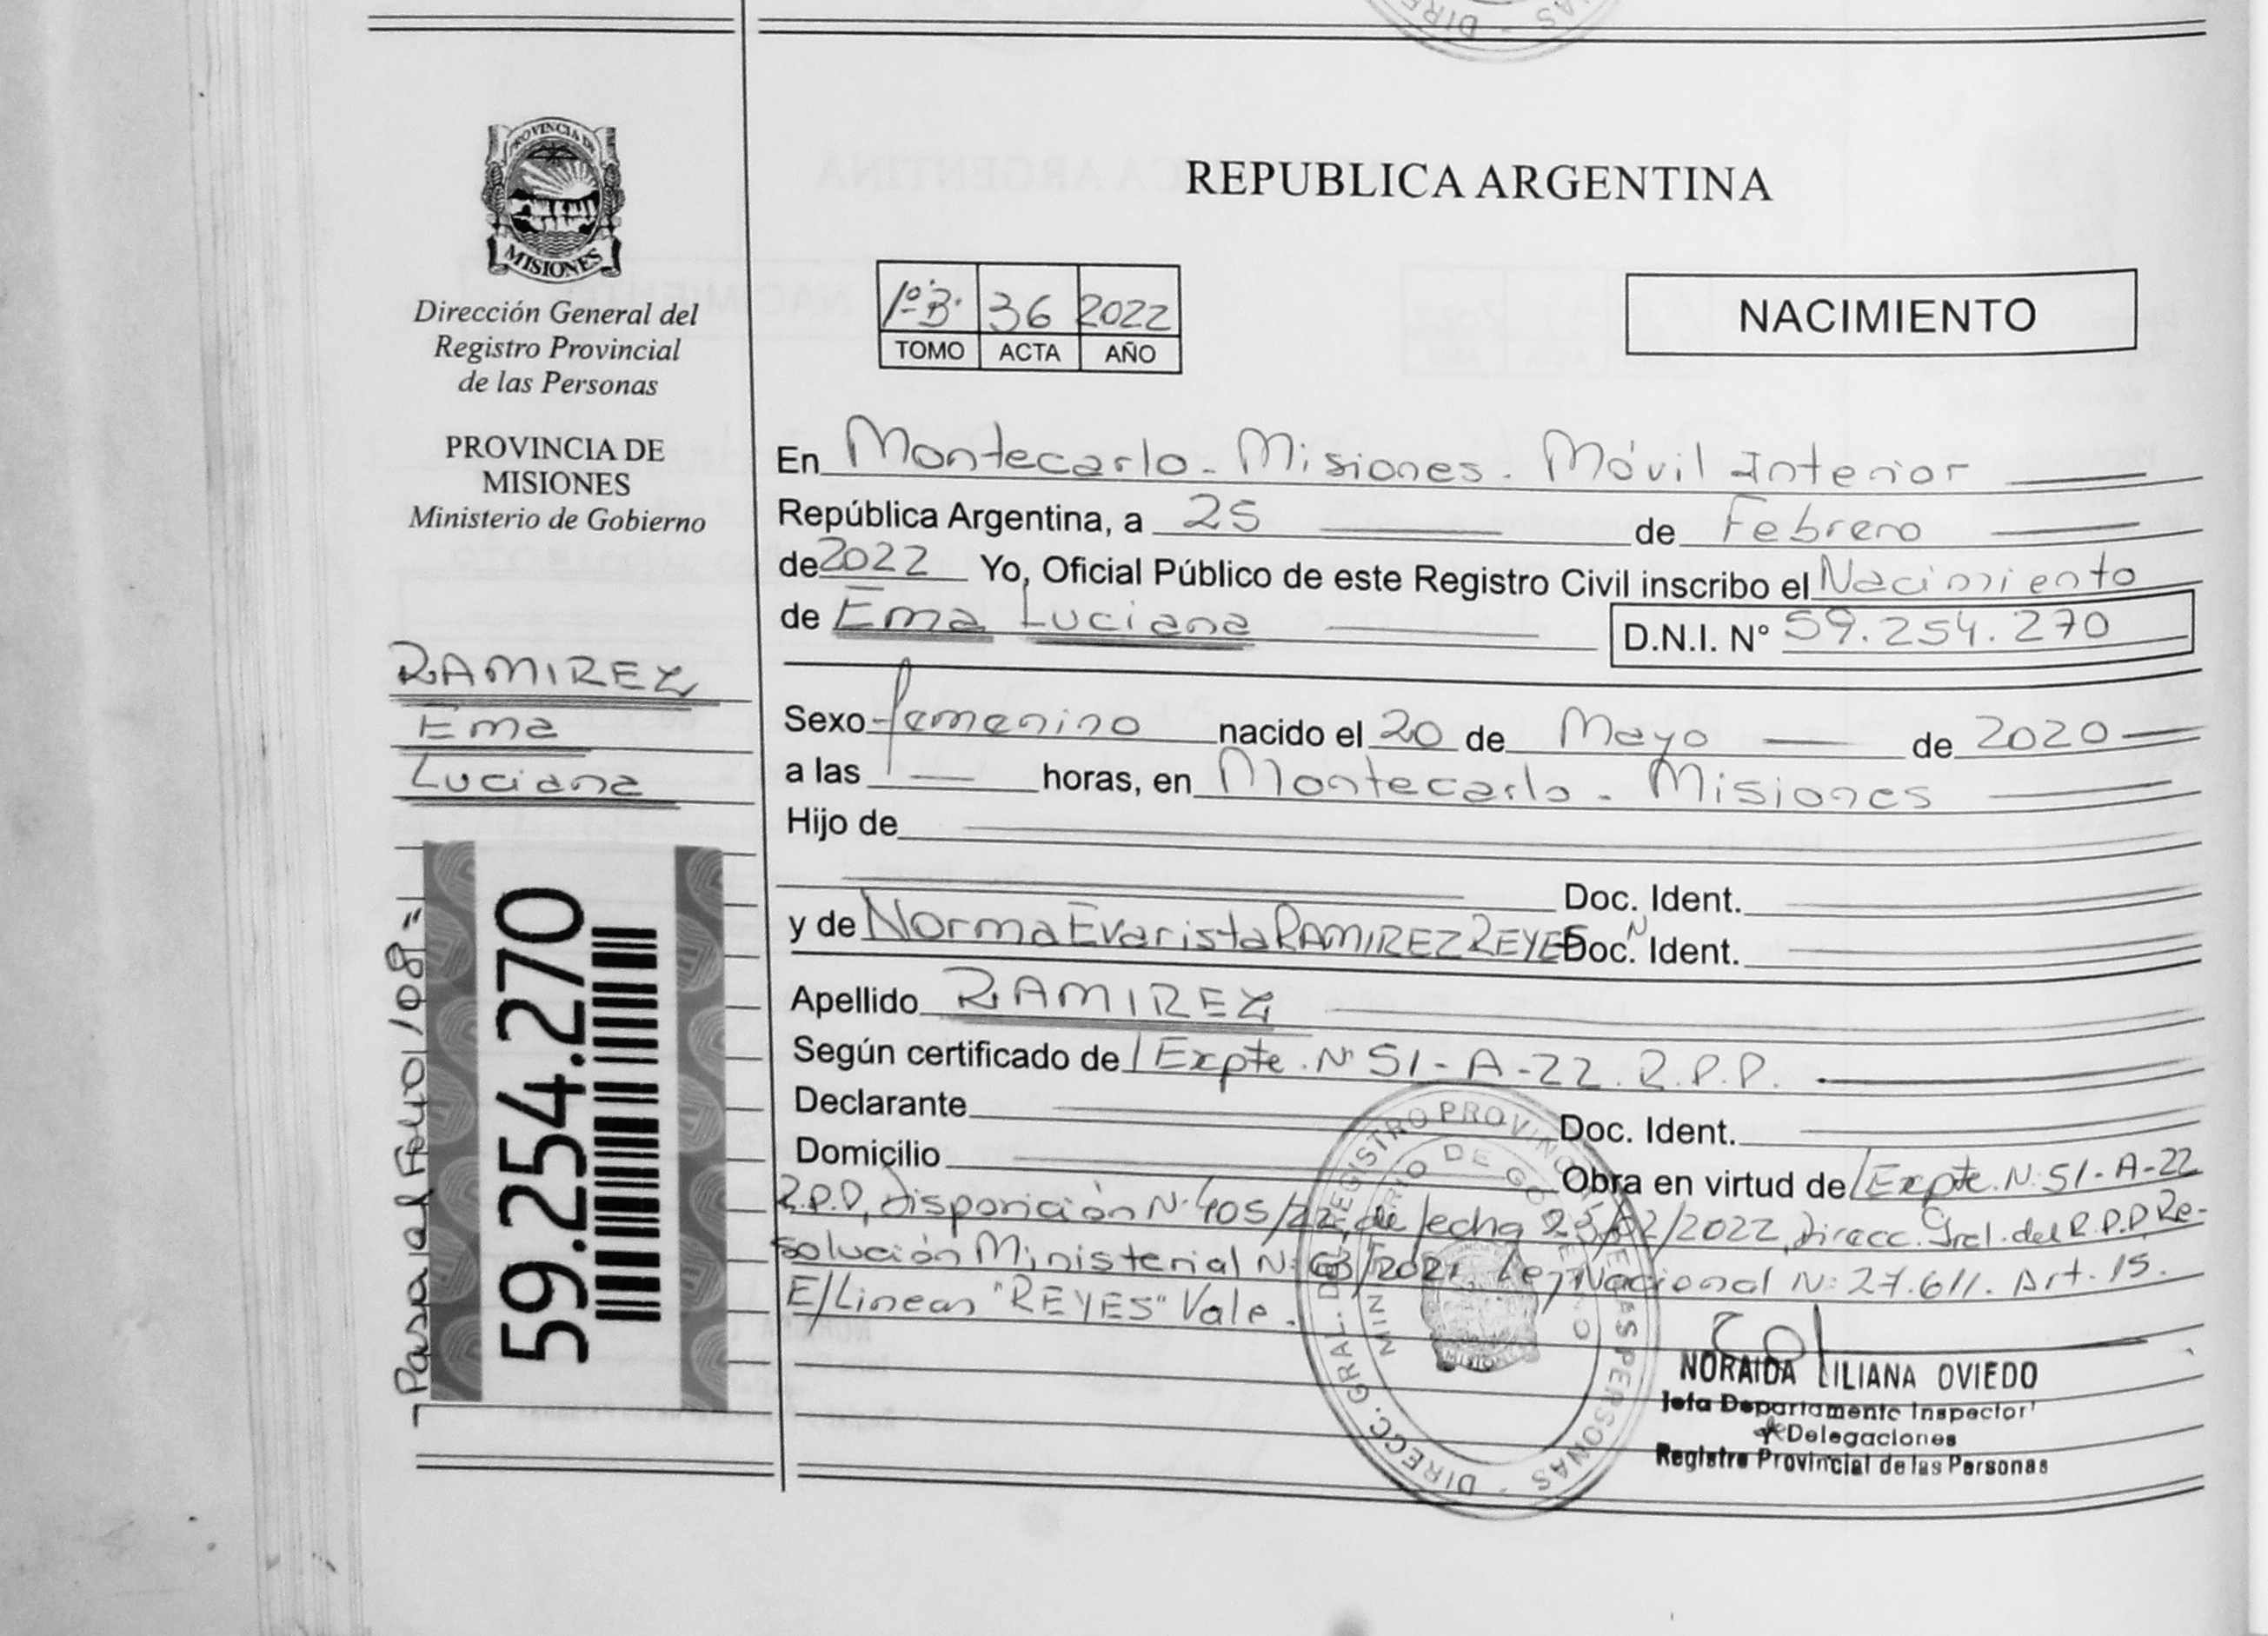 PROVINCIA DE
MISIONES
Dirección General del
Registro Provincial
de las Personas
PROVINCIA DE
MISIONES
Ministerio de Gobierno
RAMIREZ
Ema
Luciana
59.254.270
Pasa al Folio 108=
REPUBLICA ARGENTINA
1º B. 36 2022
TOMO ACTA AÑO
NACIMIENTO
En Montecarlo - Misiones. Móvil Interior
República Argentina, a 25 de Febrero
de 2022 Yo, Oficial Público de este Registro Civil inscribo el Nacimiento
de Ema Luciana D.N.I. N° 59.254.270
Sexo femenino nacido el 20 de Mayo de 2020
a las horas, en Montecarlo - Misiones
Hijo de
Doc. Ident.
y de Norma Evarista RAMIREZ REYES Doc. Ident.
Apellido RAMIREZ
Según certificado de Expte. Nº 51-A-22. R.P.P.
Declarante Doc. Ident.
Domicilio Obra en virtud de Expte. Nº 51-A-22
R.P.P, disposición Nº 405/22, de fecha 23/02/2022, Direcc. Gral. del R.P.P Re-
solución Ministerial Nº 63/2021 Ley Nacional Nº 27.611. Art. 15.
E/Lineas "REYES" Vale.
DIRECC. GRAL. DEL REGISTRO PROVINCIAL DE LAS PERSONAS
MINISTERIO DE GOBIERNO
NORAIDA LILIANA OVIEDO
Jefa Departamento Inspector
Delegaciones
Registro Provincial de las Personas